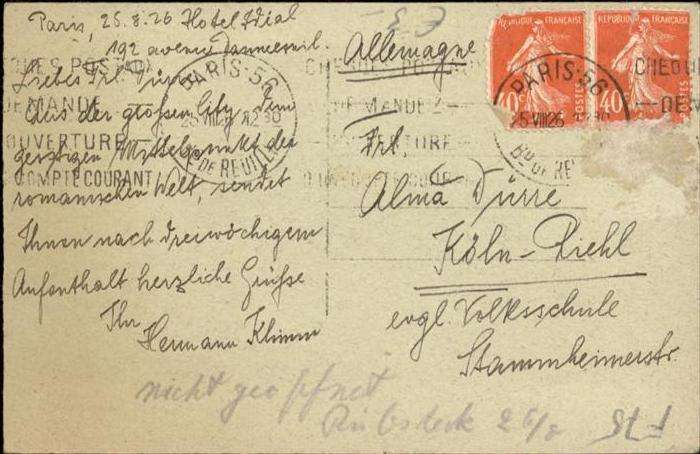 Paris, 25.8.26 Hotel Idial
192 avenue Daumesnil.
Liebes Frl. Dürre
Aus der großen City, dem
geistigen Mittelpunkt der
romanischen Welt, sendet
Ihnen nach dreiwöchigem
Aufenthalt herzliche Grüße
Ihr
Hermann Klimm
Allemagne
Frl.
Alma Dürre
Köln-Riehl
evgl. Volksschule
Stammheimerstr.
nicht geöffnet
26/8
RÉPUBLIQUE FRANÇAISE
40
POSTES
RÉPUBLIQUE FRANÇAISE
40
POSTES
PARIS-56
25 VIII 26 12 30
Bd DE REUILLY
CHEQUES POSTAUX
DEMANDEZ
OUVERTURE
COMPTE COURANT
PARIS-56
25 VIII 26 12 30
Bd DE RE
CHEQU
DEM